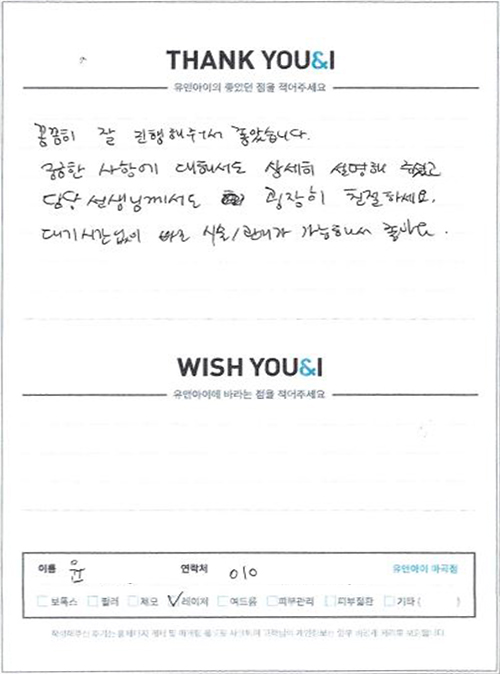 THANK YOU&I
유앤아이의 좋았던 점을 적어주세요
꼼꼼히 잘 진행해주셔서 좋았습니다.
궁금한 사항에 대해서도 상세히 설명해 주셨고
담당 선생님께서도 굉장히 친절하세요.
대기시간없이 바로 시술/관리가 가능해서 좋아요.
WISH YOU&I
유앤아이에 바라는 점을 적어주세요
이름 윤 연락처 010 유앤아이 마곡점
보톡스 필러 제모 레이저 여드름 피부관리 피부질환 기타 ( )